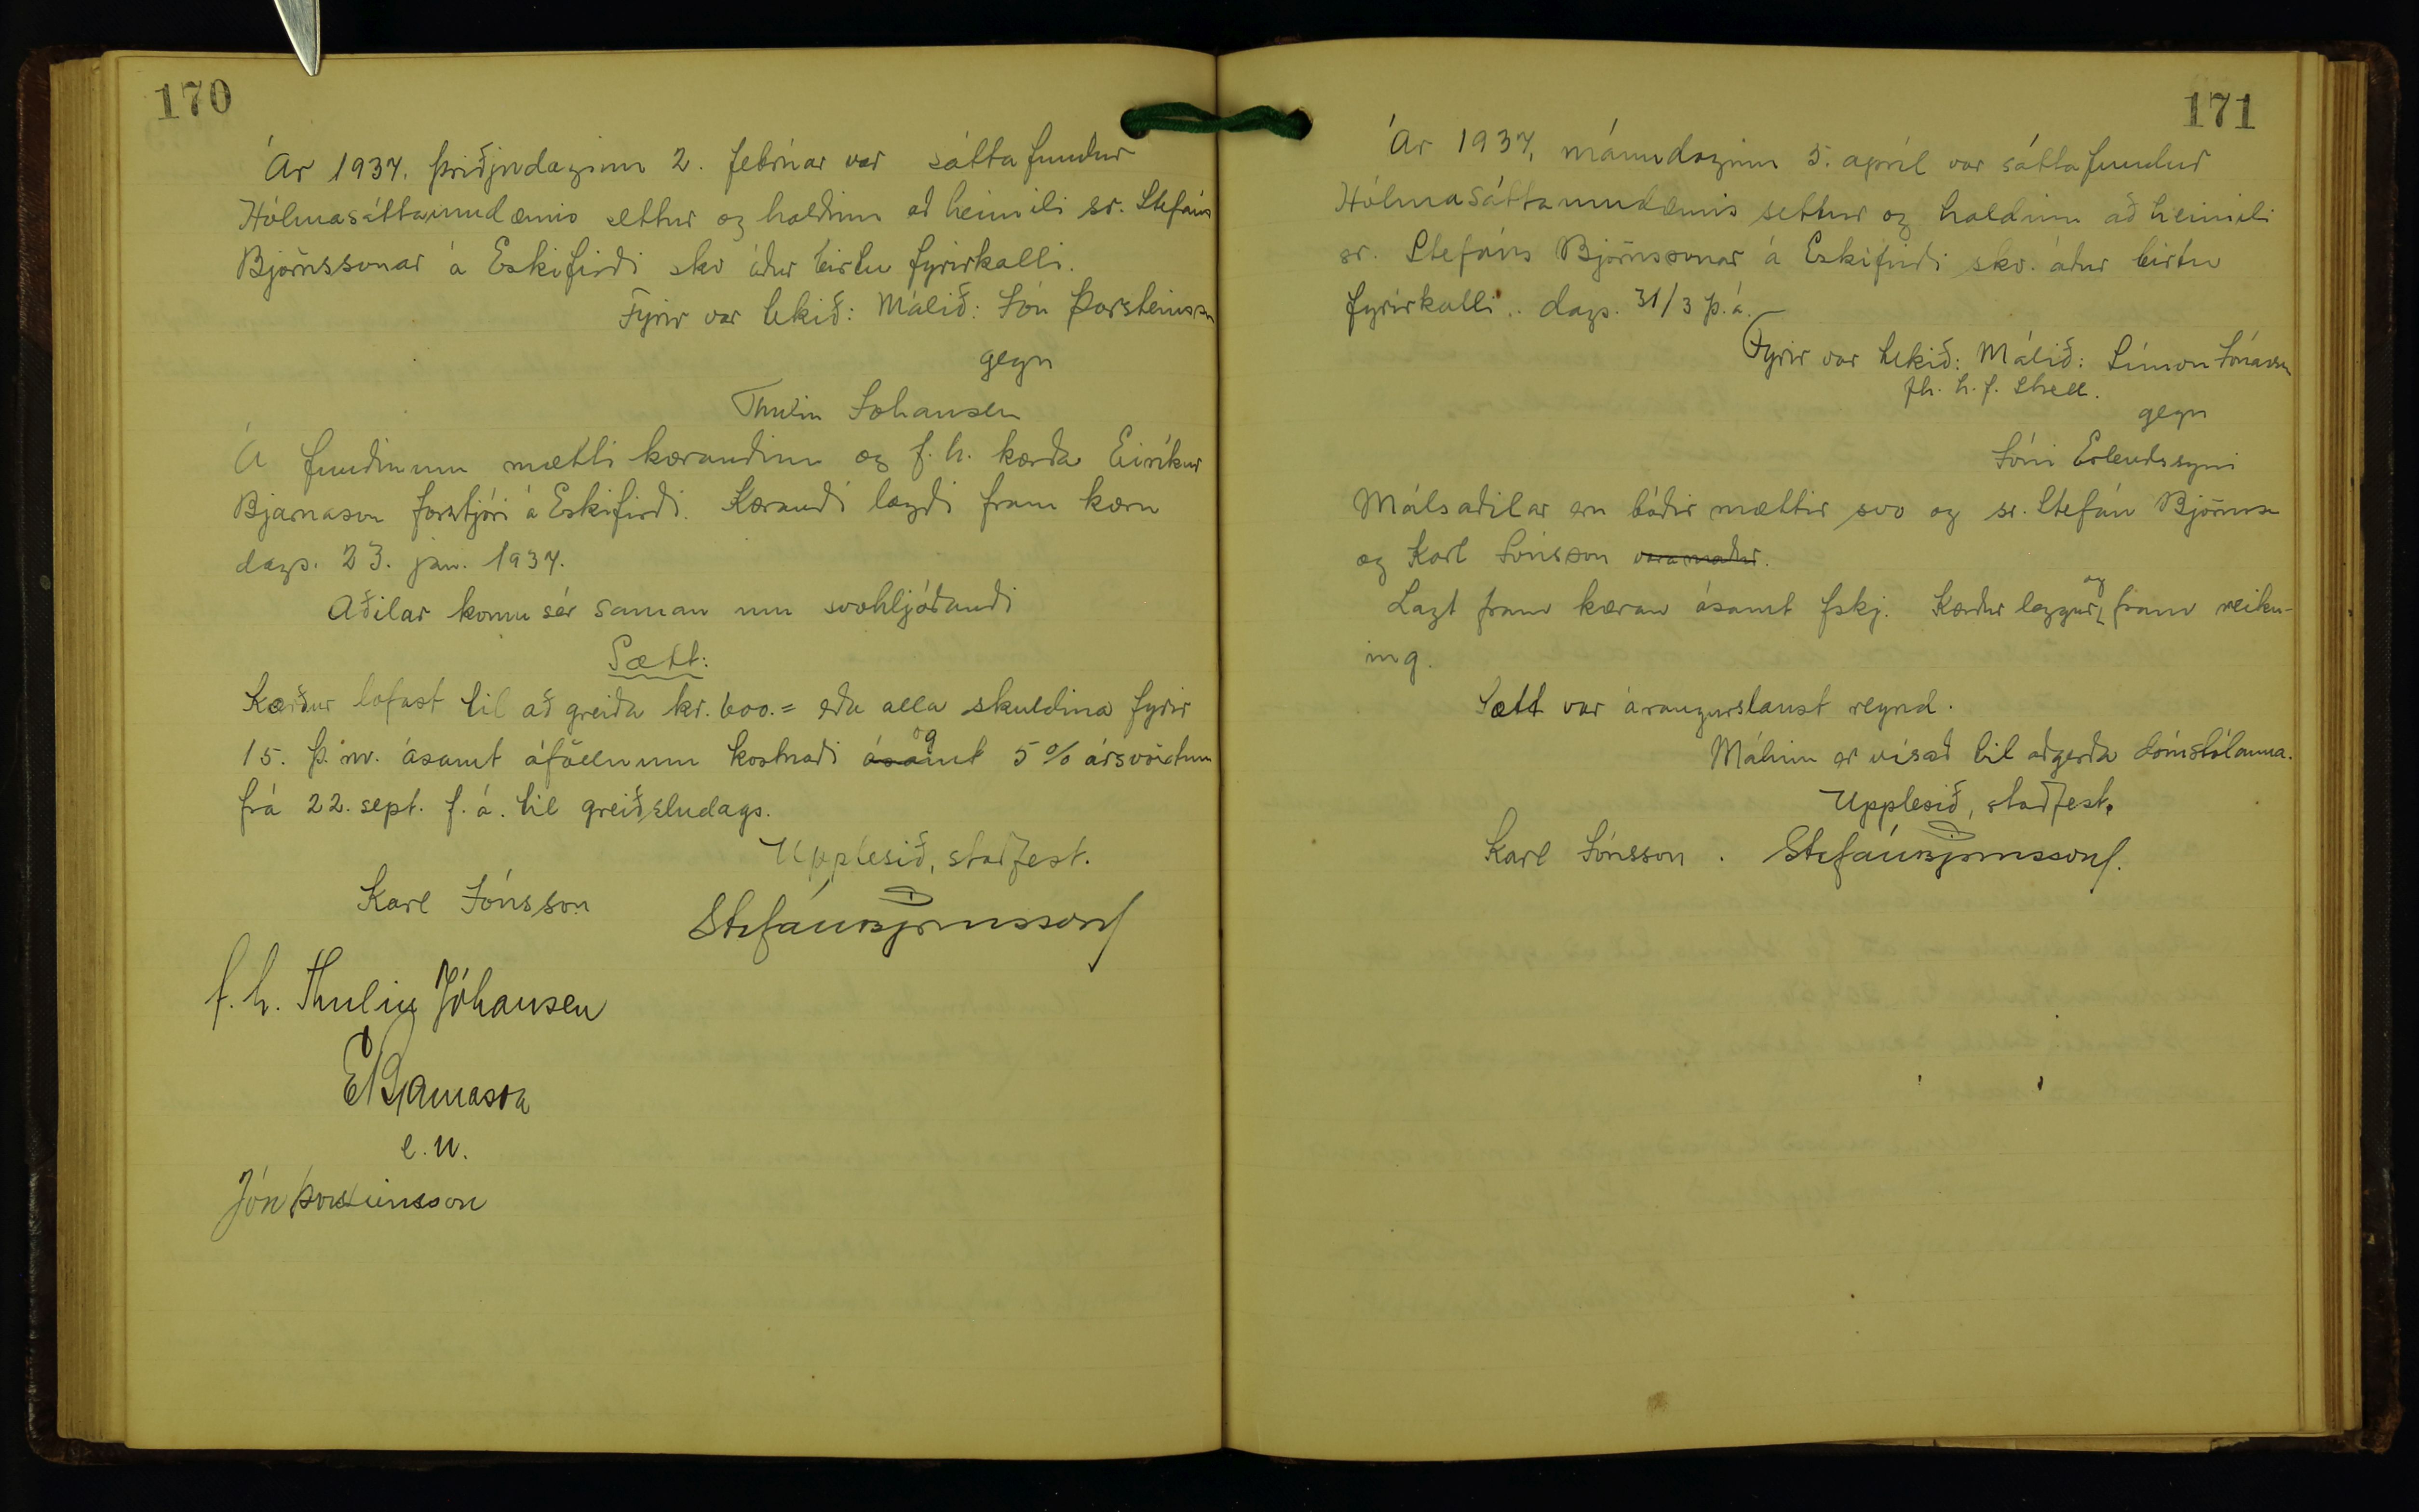 170
Ár 1937, þriðjudaginn 2. febrúar var sáttafundur
Hólmasáttaumdæmis settur og haldinn að heimili sr. Stefáns
Björnssonar á Eskifirði skv áður birtu fyrirkalli.
Fyrir var tekið: Málið: Jón Þorsteinsson
gegn
Thulin Johansen
Á fundinum mætti kærandinn og f.h. kærða Eiríkur
Bjarnason forstjóri á Eskifirði. Kærandi lagði fram kæru
dags. 23. jan. 1937.
Aðilar komu sér saman um svohljóðandi
Sætt:
Kærður lofast til að greiða kr. 600.= eða alla skuldina fyrir
15. þ.m. ásamt áföllnum kostnaði ásamt og 5% ársvöxtum
frá 22. sept. f. á. til greiðsludags.
Upplesið, staðfest.
Karl Jónsson StefánBjörnsson
f. h. Thulin Jóhansen
EBjarnason
e.u.
Jón Þorsteinsson
171
Ár 1937, mánudaginn 5. apríl var sáttafundur
Hólmasáttaumdæmis settur og haldinn að heimili
sr. Stefáns Björnssonar á Eskifirði skv. áður birtu
fyrirkalli.. dags. 31/3 þ.á.
Fyrir var tekið: Málið: Símon Jónasson
fh. h.f. Shell.
gegn
Jóni Erlendssyni
Málsaðilar eru báðir mættir svo og sr. Stefán Björnsson
og Karl Jónsson varamaður.
Lagt fram kæran ásamt fskj. Kærður leggur og fram reikn-
ing.
Sætt var árangurslaust reynd.
Málinu er vísað til aðgerða dómstólanna.
Upplesið, staðfest.
Karl Jónsson . StefánBjörnsson.